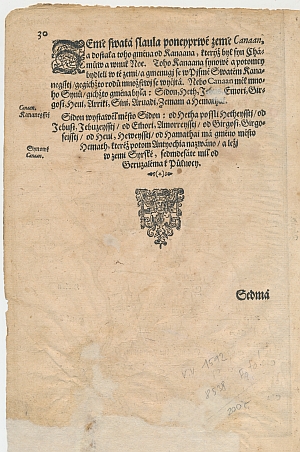 30
ZEmě swatá slaula ponejprwé země Canaan,
a dostala toho gména od Kanaana / kterýž byl syn Chá-
můw a wnuk Noe. Toho Kanaana synowé a potomcy
bydleli w té zemi / a gmenugj se w Pjsmě Swatém Kana-
negsstj / gegichžto rodů množstwj se wyčjtá. Nebo Canaan měl mno-
ho Synů / gichžto gména bysa : Sidon, Heth, Emori, Gir-
gosi, Heui, Arriki, Sini, Aruadi, Zemari a Hemathi.
Canan.
Kananeysstj
Sidon wystawěl město Sidon : od Hetha possli Hetheysstj / od
Jebusi, Jebuzeysstj / od Emori, Amorreysstj / od Girgosi, Girgo-
seysstj / od Heui, Heweysstj / od Hamathai má gméno město
Hemath, kteréž potom Antyochia nazwáno / a ležj
w zemi Syrské, sedmdesáte mil od
Geruzaléma k Půlnocy.
Synowé
Canan.
Sedmá